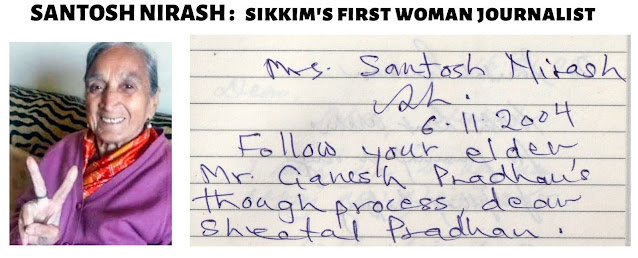 SANTOSH NIRASH : SIKKIM'S FIRST WOMAN JOURNALIST
Mrs. Santosh Nirash
6.11.2004
Follow your elder,
Mr. Ganesh Pradhan's
though process dear
Sheetal Pradhan.